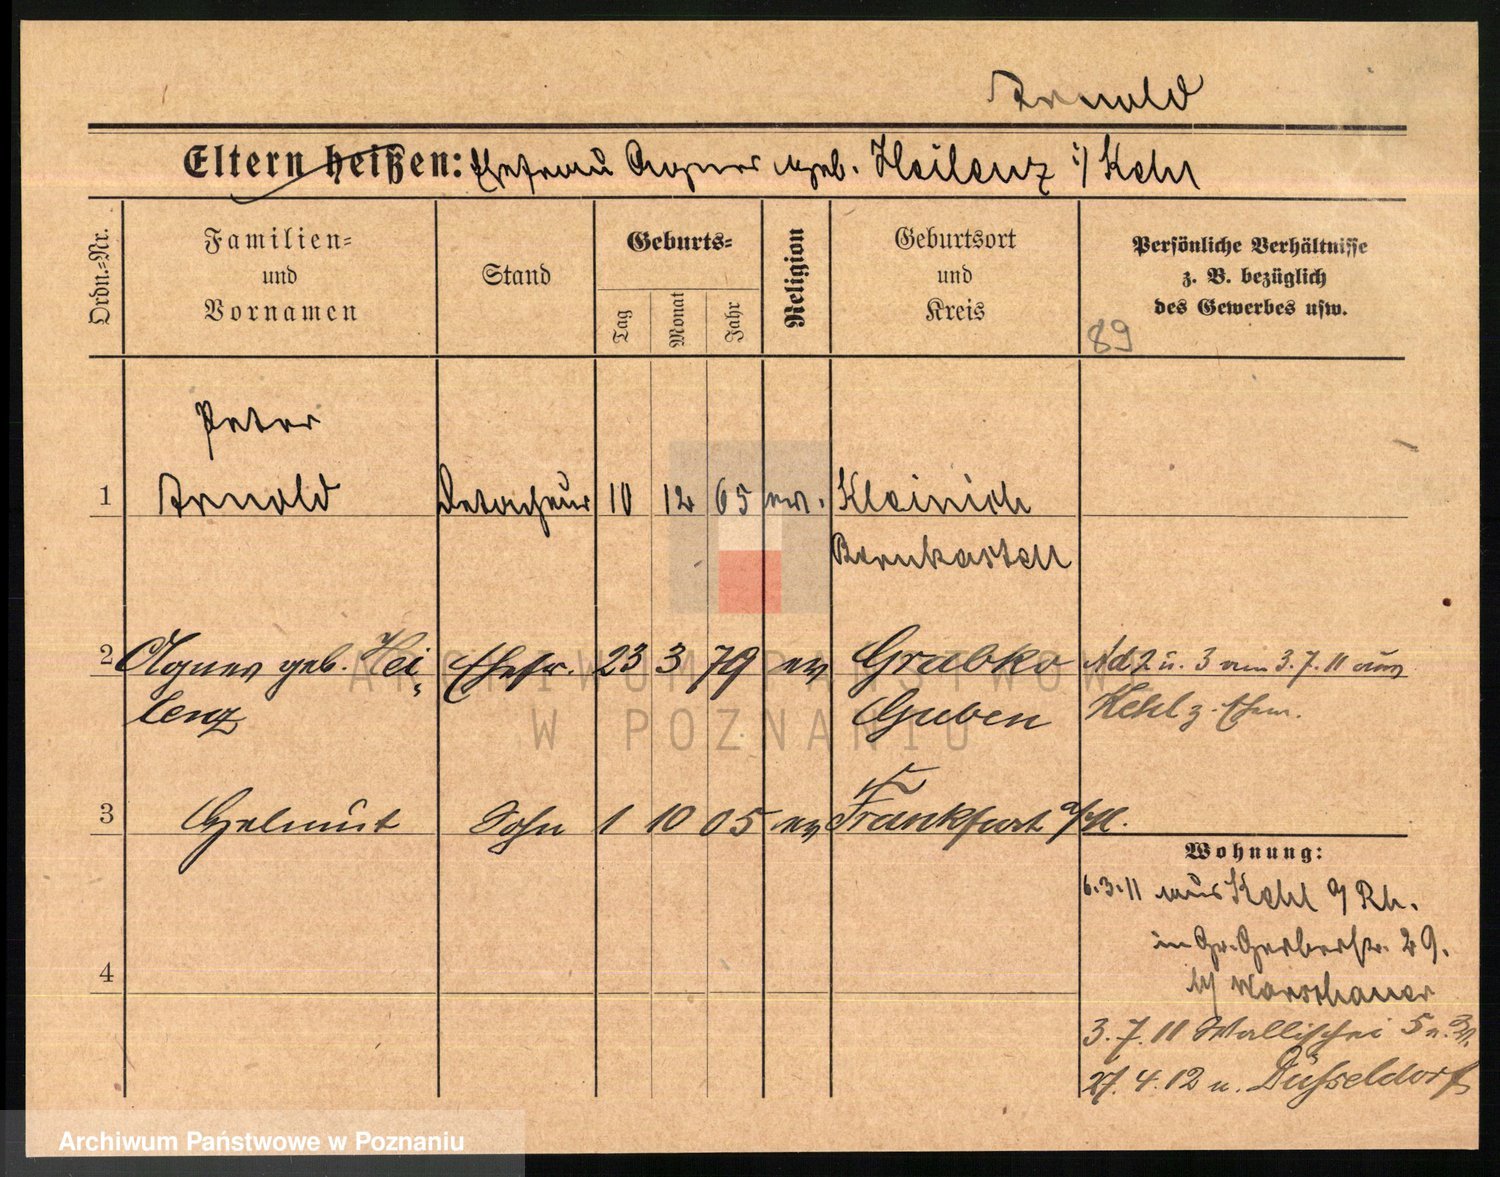 Arnold
Eltern heißen: Ehefrau Agnes geb. Heilenz i/ Kehl
Ordn.-Nr.
Familien-
und
Vornamen
Stand
Geburts-
Tag
Monat
Jahr
Religion
Geburtsort
und
Kreis
Persönliche Verhältnisse
z. B. bezüglich
des Gewerbes usw.
89
Peter
1 Arnold Detacheur 10 12 65 ev. Kleinich
Bernkastell
2 Agnes geb. Hei- Ehefr. 23 3 79 ev Grabko Ad 2 u. 3 vom 3.7.11 aus
lenz Guben Kehl z. Ehem.
3 Helmut Sohn 1 10 05 ev Frankfurt a/M.
Wohnung:
6.3.11 aus Kehl a/ Rh.
in Gr. Gerberstr. 29.
4
b/ Warschauer
3.7.11 Wallischei 5 u.
27.4.12 n. Düsseldorf
ARCHIWUM PAŃSTWOWE
W POZNANIU
Archiwum Państwowe w Poznaniu